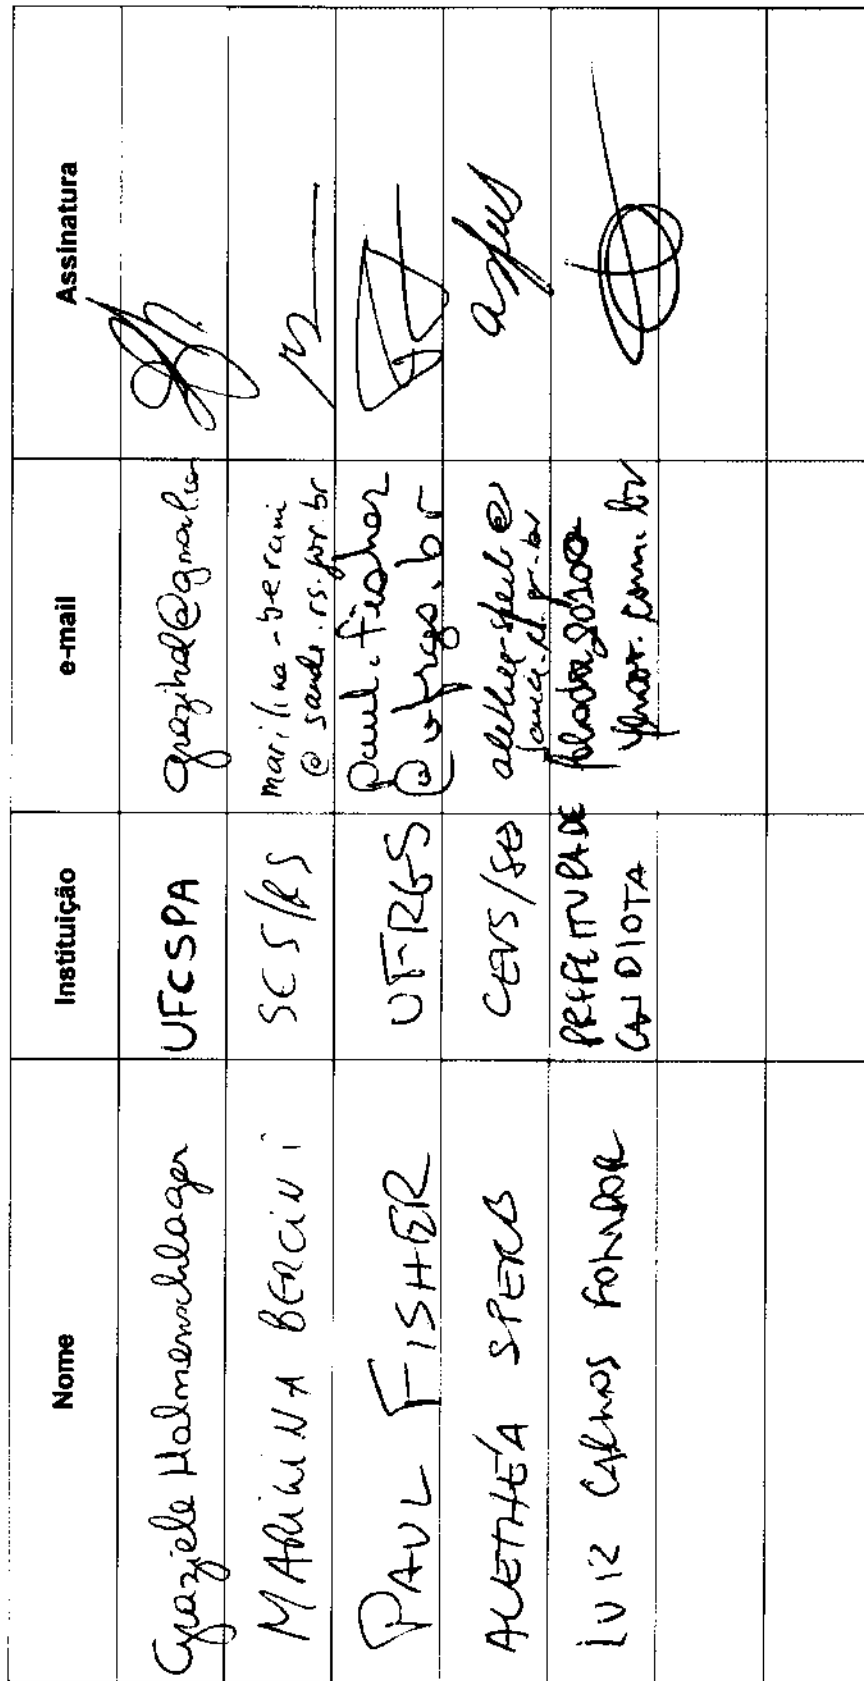 Nome Instituição e-mail Assinatura
Graziele Halmenschlager UFCSPA grazihal@gmail.com
MARILINA BERCINI SES/RS marilina-bercini
@saude.rs.gov.br
PAUL FISHER UFRGS Paul.fisher
@ufrgs.br
ALETHÉA SPERB CEVS/SES alethea-sperb@
LUIZ CARLOS FOLADOR PREFEITURA DE
CANDIOTA